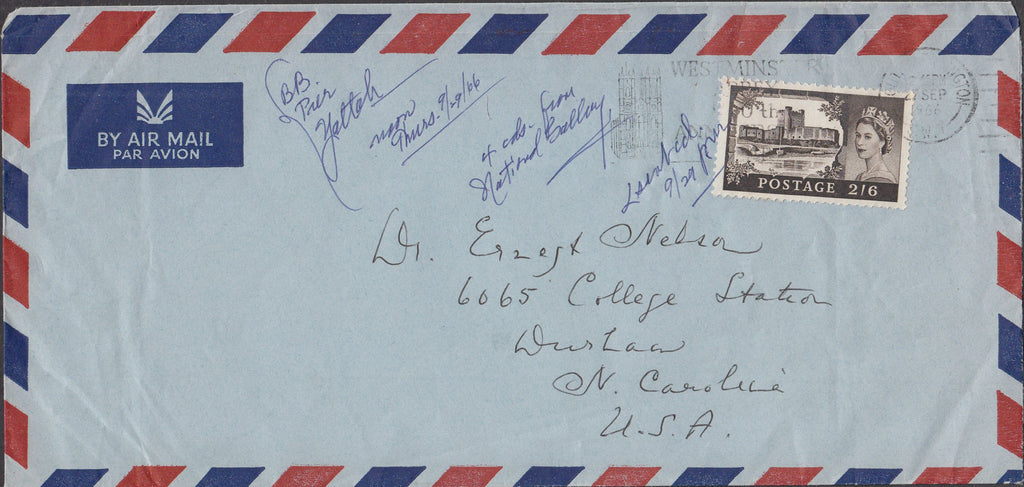 BY AIR MAIL
PAR AVION
BB.
Pier
noon
Thurs. 9/29/66
4 cds. from
National Gallery
9/29
WESTMINSTER
to the
SEP
POSTAGE 2/6
Dr. Ernest Nelson
6065 College Station
Durham
N. Carolina
U.S.A.